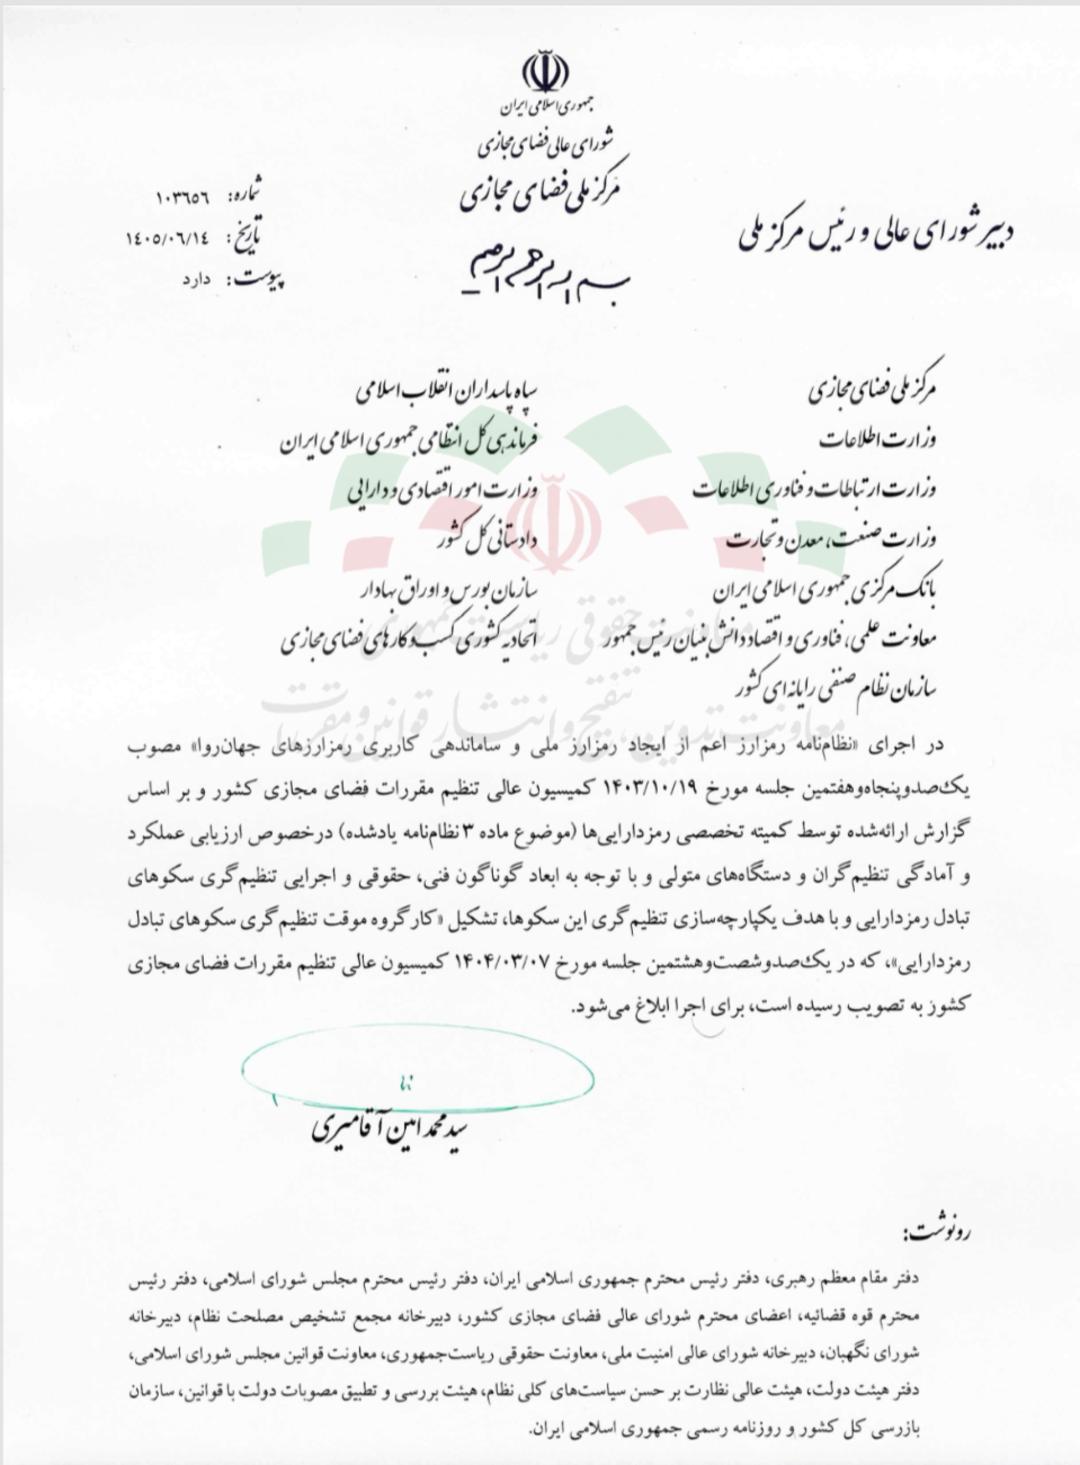 جمهوری اسلامی ایران
شورای عالی فضای مجازی
مرکز ملی فضای مجازی
دبیر شورای عالی و رئیس مرکز ملی
شماره: ۱۰۳۶۵۶
تاریخ: ۱۴۰۵/۰۶/۱۴
پیوست: دارد
بسم الله الرحمن الرحیم
مرکز ملی فضای مجازی
وزارت اطلاعات
وزارت ارتباطات و فناوری اطلاعات
وزارت صنعت، معدن و تجارت
بانک مرکزی جمهوری اسلامی ایران
معاونت علمی، فناوری و اقتصاد دانش بنیان رئیس جمهور
سازمان نظام صنفی رایانه ای کشور
سپاه پاسداران انقلاب اسلامی
فرماندهی کل انتظامی جمهوری اسلامی ایران
وزارت امور اقتصادی و دارایی
دادستانی کل کشور
سازمان بورس و اوراق بهادار
اتحادیه کشوری کسب و کارهای فضای مجازی
معاونت حقوقی ریاست جمهوری
معاونت تدوین، تنقیح و انتشار قوانین و مقررات
در اجرای «نظام‌نامه رمزارز اعم از ایجاد رمزارز ملی و ساماندهی کاربری رمزارزهای جهان‌روا» مصوب
یک‌صدوپنجاه‌وهفتمین جلسه مورخ ۱۴۰۳/۱۰/۱۹ کمیسیون عالی تنظیم مقررات فضای مجازی کشور و بر اساس
گزارش ارائه‌شده توسط کمیته تخصصی رمزدارایی‌ها (موضوع ماده ۳ نظام‌نامه یادشده) درخصوص ارزیابی عملکرد
و آمادگی تنظیم‌گران و دستگاه‌های متولی و با توجه به ابعاد گوناگون فنی، حقوقی و اجرایی تنظیم‌گری سکوهای
تبادل رمزدارایی و با هدف یکپارچه‌سازی تنظیم‌گری این سکوها، تشکیل «کارگروه موقت تنظیم‌گری سکوهای تبادل
رمزدارایی»، که در یک‌صدوشصت‌وهشتمین جلسه مورخ ۱۴۰۴/۰۳/۰۷ کمیسیون عالی تنظیم مقررات فضای مجازی
کشوز به تصویب رسیده است، برای اجرا ابلاغ می‌شود.
سید محمد امین آقامیری
رونوشت:
دفتر مقام معظم رهبری، دفتر رئیس محترم جمهوری اسلامی ایران، دفتر رئیس محترم مجلس شورای اسلامی، دفتر رئیس
محترم قوه قضائیه، اعضای محترم شورای عالی فضای مجازی کشور، دبیرخانه مجمع تشخیص مصلحت نظام، دبیرخانه
شورای نگهبان، دبیرخانه شورای عالی امنیت ملی، معاونت حقوقی ریاست‌جمهوری، معاونت قوانین مجلس شورای اسلامی،
دفتر هیئت دولت، هیئت عالی نظارت بر حسن سیاست‌های کلی نظام، هیئت بررسی و تطبیق مصوبات دولت با قوانین، سازمان
بازرسی کل کشور و روزنامه رسمی جمهوری اسلامی ایران.